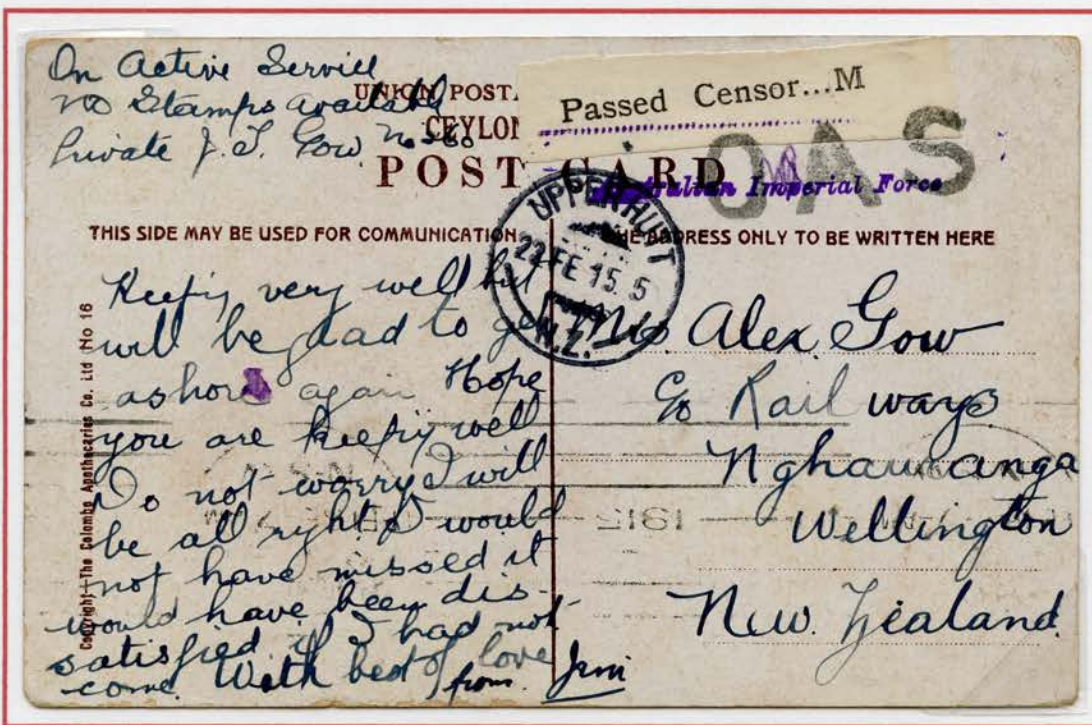 On Active Service
No Stamps available
Private J. S. Gow No
UNION POST
CEYLON
POST CARD
Passed Censor...M
OAS
Australian Imperial Force
THIS SIDE MAY BE USED FOR COMMUNICATION
THE ADDRESS ONLY TO BE WRITTEN HERE
UPPER HUTT
22 FE 15. 5
N.Z.
Copyright-The Colombo Apothecaries Co. Ltd No 16
Keepig very well but
will be glad to get
ashore again Hope
you are keepig well
Do not worry I will
be all right I would
not have missed it
would have been dis-
satisfied if I had not
come. With best of love
from. Jim
Alex. Gow
c/o Railways
Nghauranga
Wellington
New Zealand.
1912